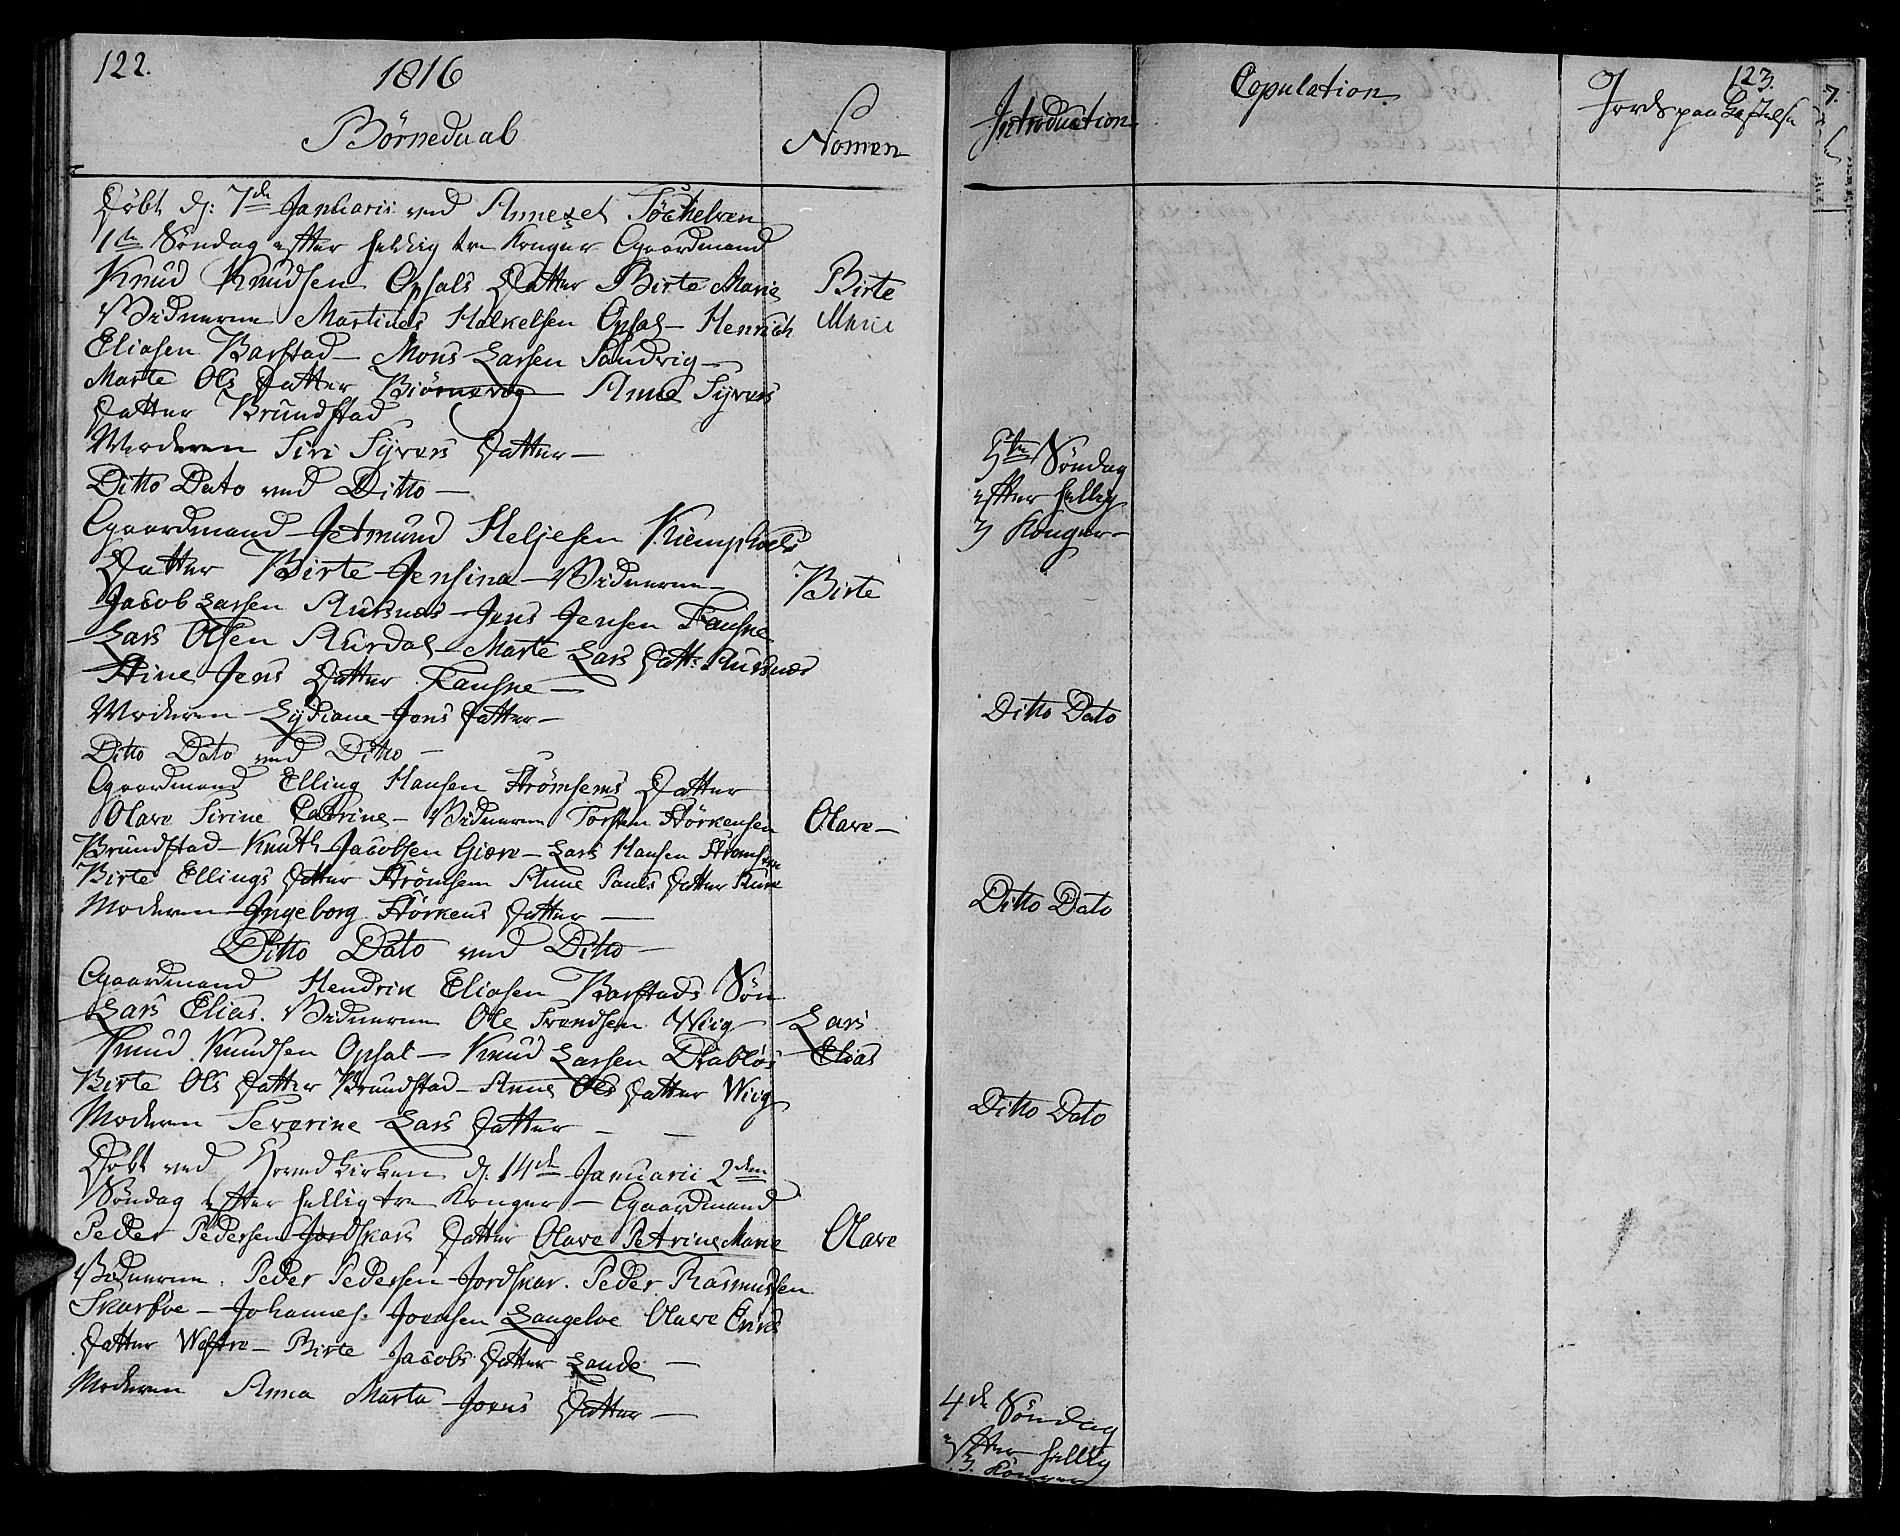 122.
1816
Børnedaab
Nomen
Døbt d: 7de Januarii ved Annexet Søchelven
1te Søndag efter hellig tre Konger Gaardmand
Knud Knudsen Opsals Datter Birte Marie
Birte
Marie
Vidnerne Martines Halkelsen Opsal - Henrich
Eliasen Barstad - Mons Larsen Sandvig -
Marte Ols Datter Biørnevog Anne Syvers
Datter Brundstad
Moderen Siri Syvers Datter -
Ditto Dato ved Ditto -
Gaardmand Jetmund Heljesen Kiemphols
Datter Birte Jensina - Vidnerne -
Birte
Jacob Larsen Aursnæs - Jens Jensen Fauske
Lars Olsen Aurdal - Marte Lars Datt: Aursnæs
Stine Jens Datter Fauske -
Moderen Lydiane Jens Datter -
Ditto Dato ved Ditto -
Gaardmand Elling Hansen Strømsems Datter
Olave Sirine Catrine - Vidnerne Torsten Størkersen
Olave -
Brundstad - Knuth Jacobsen Giære - Lars Hansen Strømsem
Birte Ellings Datter Strømsem Anne Pauls Datter Aure
Moderen Ingeborg Størkers Datter -
Ditto Dato ved Ditto -
Gaardmand Hendrik Eliasen Barstads Søn
Lars Elias. Vidnerne Ole Svendsen Wiig -
Lars
Elias
Knud Knudsen Opsal - Knud Larsen Drabløs
Birte Ols Datter Brundstad - Anne Ols Datter Wiig
Moderen Severine Lars Datter - -
Døbt ved Hovedkirken d: 14de Januarii 2den
Søndag efter hellig tre Konger - Gaardmand
Peder Pedersen Jordskars Datter Olave Petrine Marie
Olave
Vidnerne. Peder Pedersen Jordskar. Peder Rasmussen
Skarbøe - Johannes Joensen Langeloe Olave Eriks
Datter Westre - Birte Jacobs Datter Lande -
Moderen Anna Marta Joens Datter -
123.
Introduction
Copulation.
Jordspaakastelse
5te Søndag
efter hellig
3 Konger -
Ditto Dato
Ditto Dato
Ditto Dato
4de Søndag
efter hellig
3. Konger